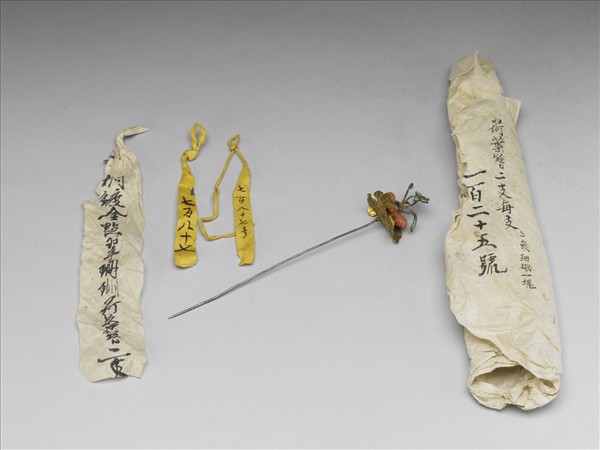 銅鍍金點翠珊瑚荷葉簪二支
七百八十七
七百八十七号
荷葉簪二支每支
上嵌珊瑚一塊
一百二十五號